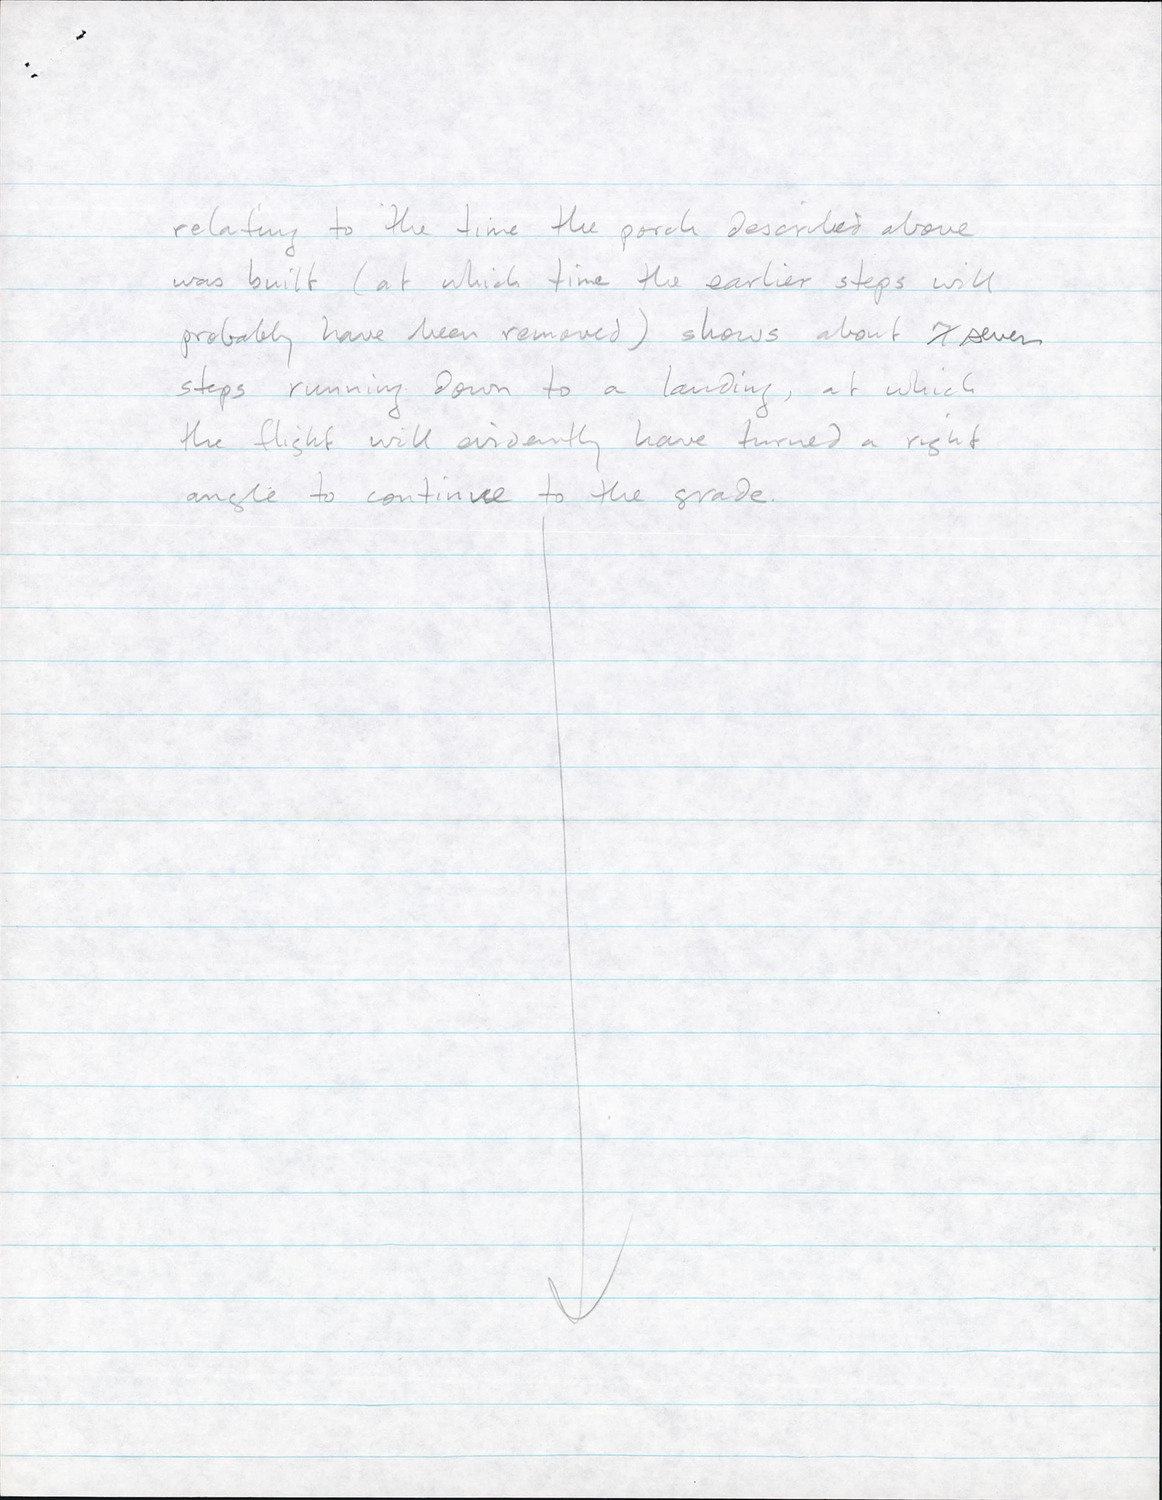 relating to the time the porch described above
was built (at which time the earlier steps will
probably have been removed) shows about 7 seven
steps running down to a landing, at which
the flight will evidently have turned a right
angle to continue to the grade.